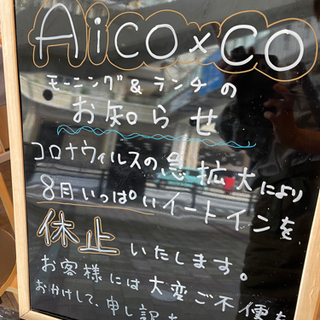 AiCO x CO
モーニング & ランチの
お知らせ
コロナウィルスの急拡大により
8月いっぱいイートインを
休止いたします。
お客様には大変ご不便を
おかけして、申し訳